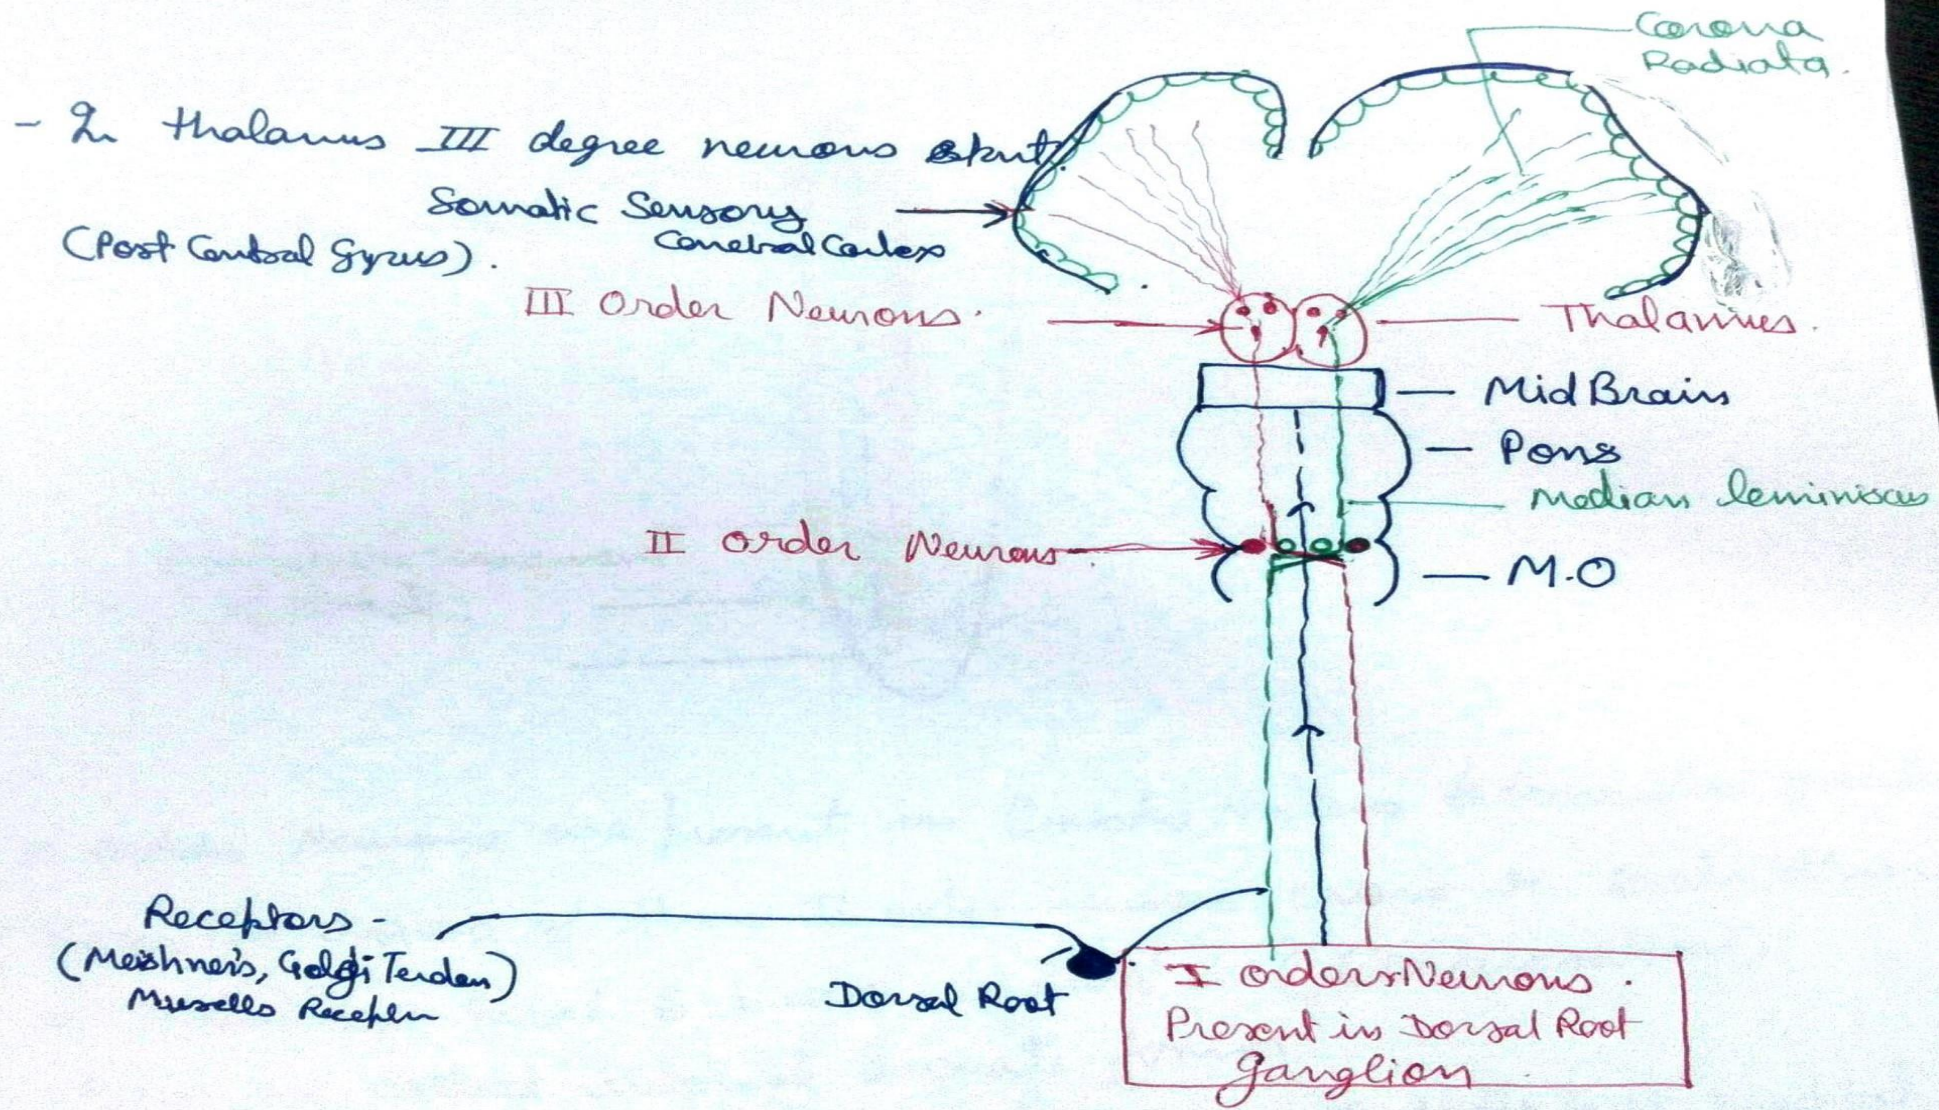 Corona
Radiata.
- In thalamus III degree neurons start.
Somatic Sensory
Cerebral Cortex
(Post Central Gyrus).
III Order Neurons.
Thalamus.
Mid Brain
Pons
Median leminiscus
II order Neurons
M.O
Receptors -
(Meishner's, Golgi Tendon)
Receptor
Dorsal Root
I orders Neurons.
Present in Dorsal Root
Ganglion